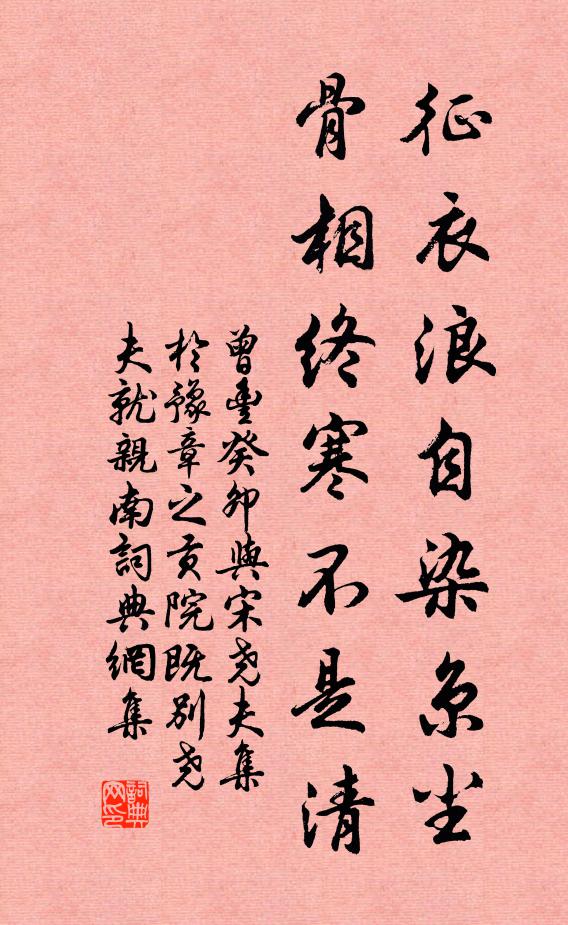 征衣浪自染京尘
骨相终寒不是清
曾豊癸卯與宋尧夫集
於豫章之贡院既别尧
夫就親南詞典網集
詞典网印